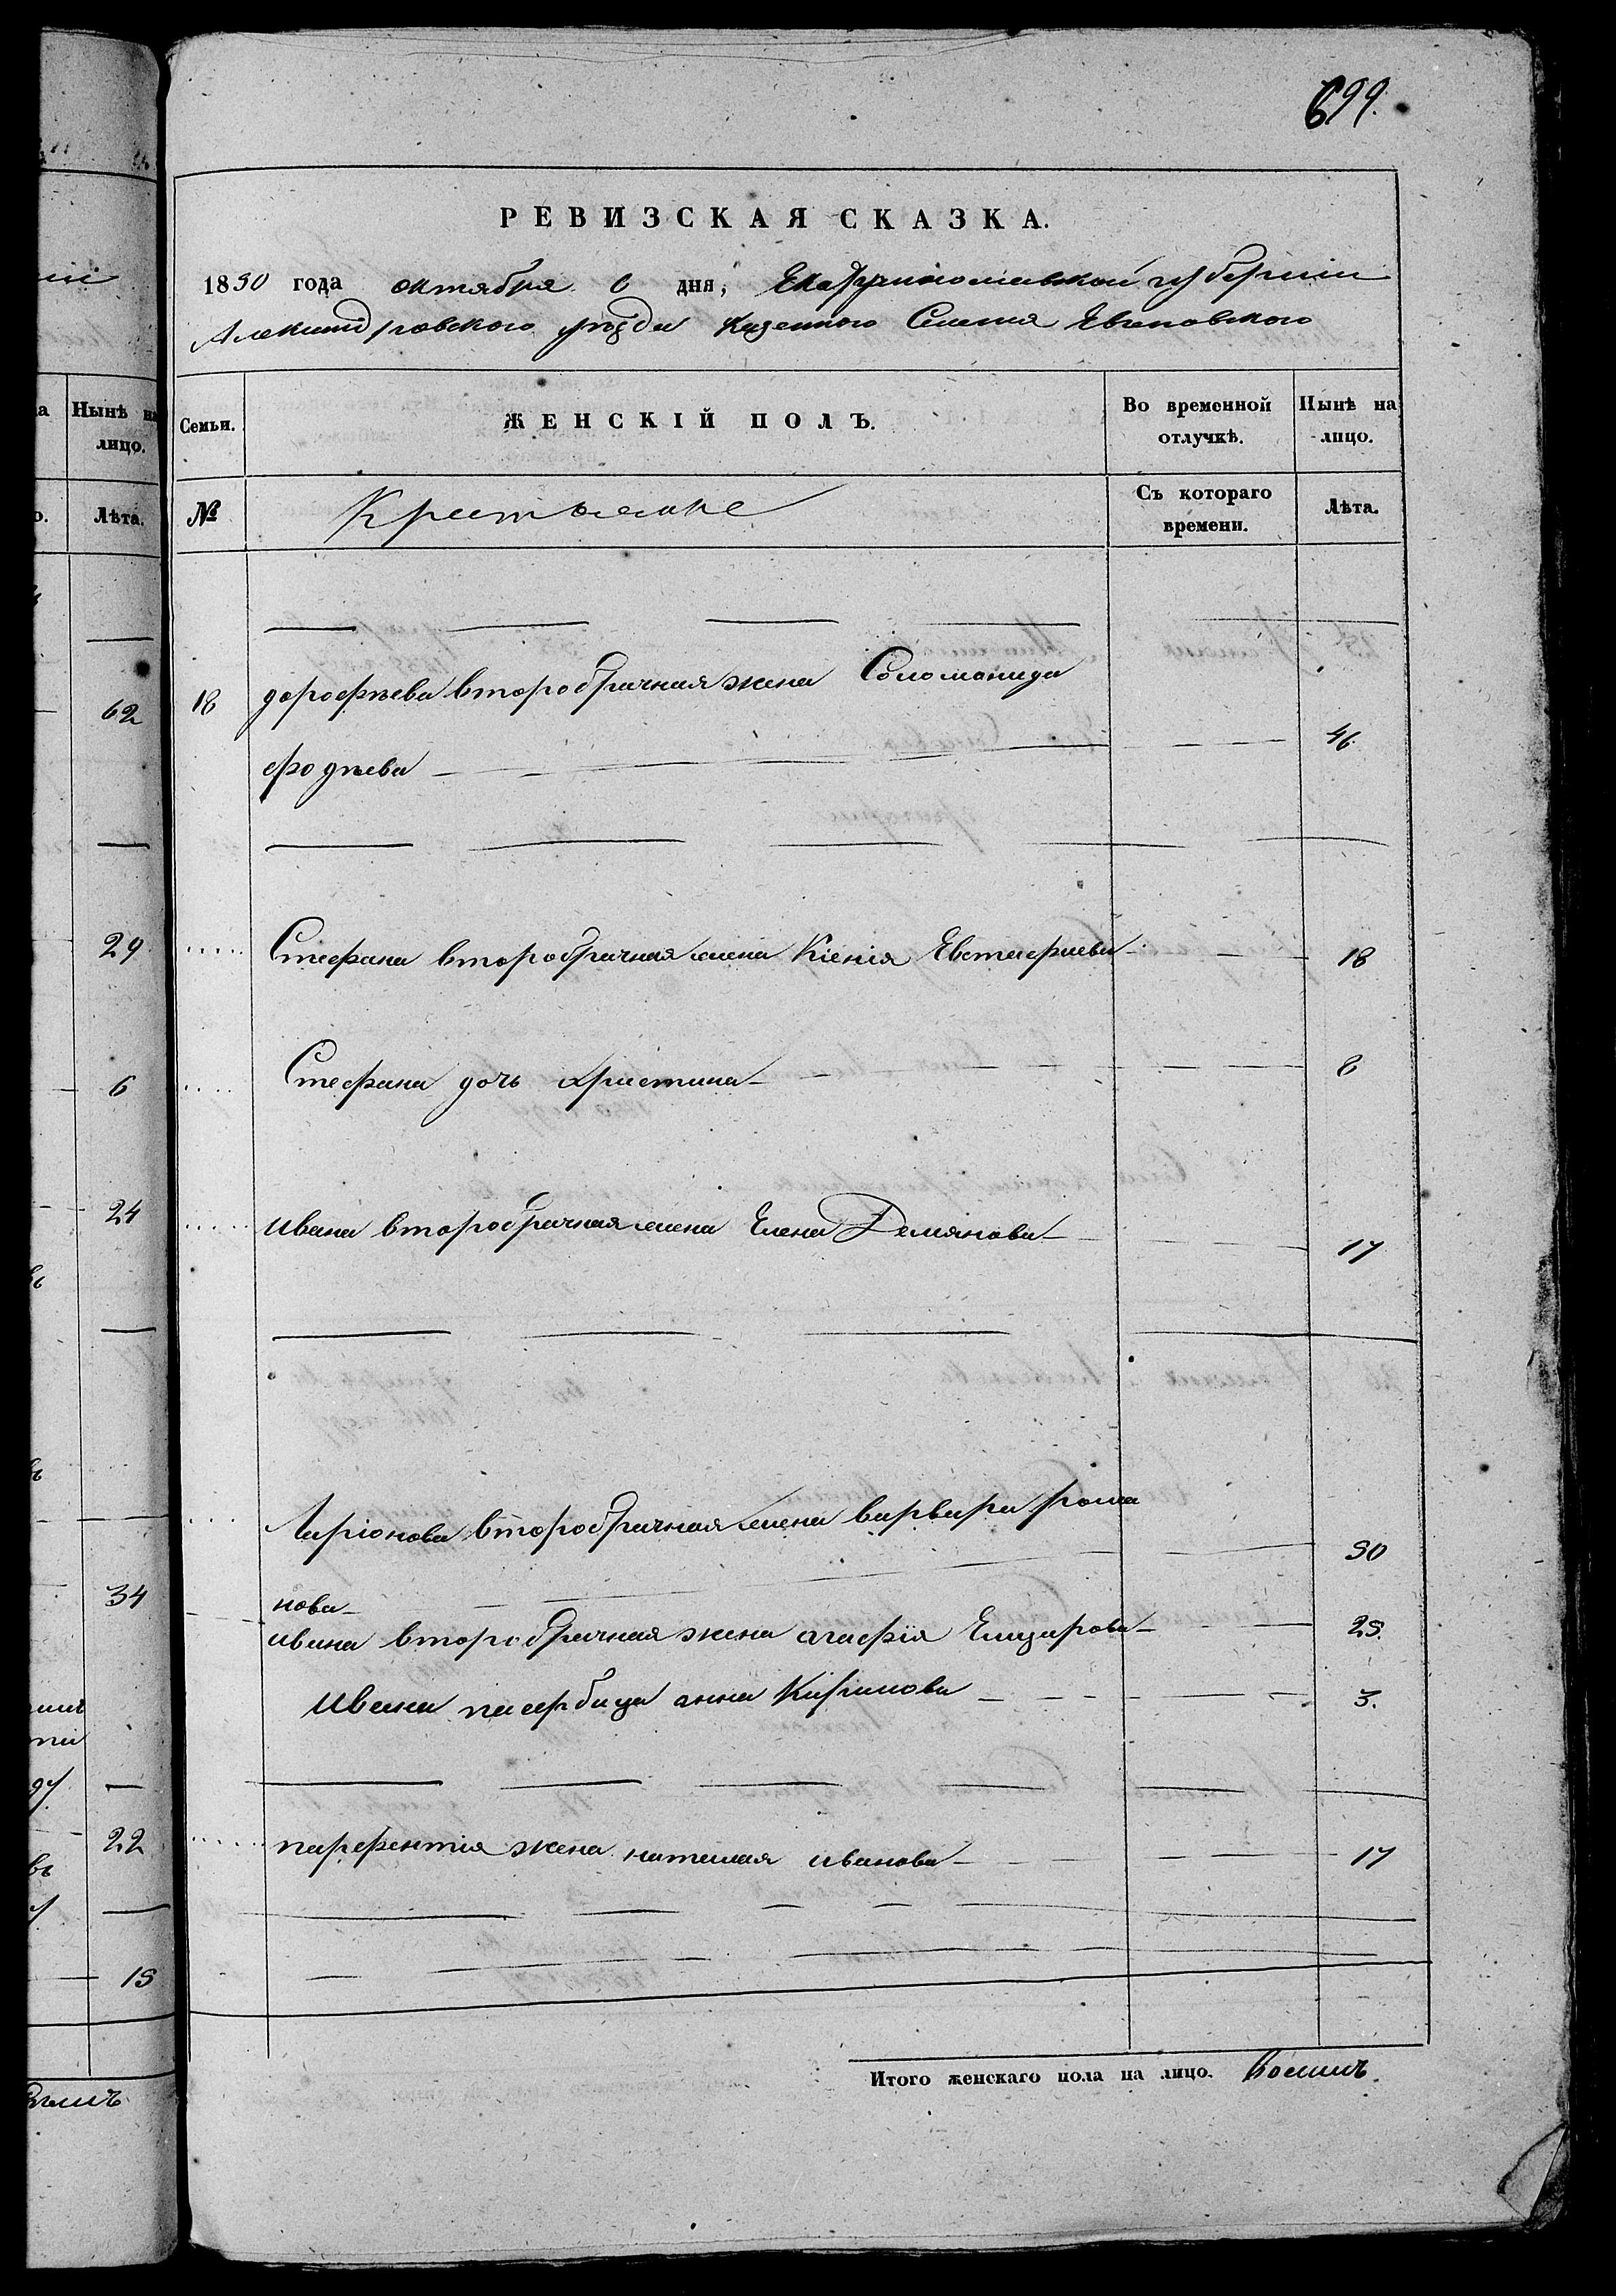 699.
РЕВИЗСКАЯ СКАЗКА.
1850 года октября 6 дня, Екатеринославской губернии
Александровского уезда Казенного Селения
Семьи.
ЖЕНСКІЙ ПОЛЪ.
Во временной отлучкѣ.
Нынѣ на лицо.
№
Крестьяне
Съ котораго времени.
Лѣта.
18 дорофѣева второбрачная жена Соломонида
фодѣева 46
Стефана второбрачная жена Ксенія Евстафиева 18
Стефана дочь Христина 8
ивана второбрачная жена Елена Демянова 17
Ларіонова второбрачная жена варвара рома
нова 50
ивана второбрачная жена агафія Елизарова 25.
Ивана пасербица анна 3.
парфентія жена наталия иванова 17
Итого женскаго пола на лицо. Восимъ.
Нынѣ на
лицо.
Лѣта.
62
29
6
24
34
22
15